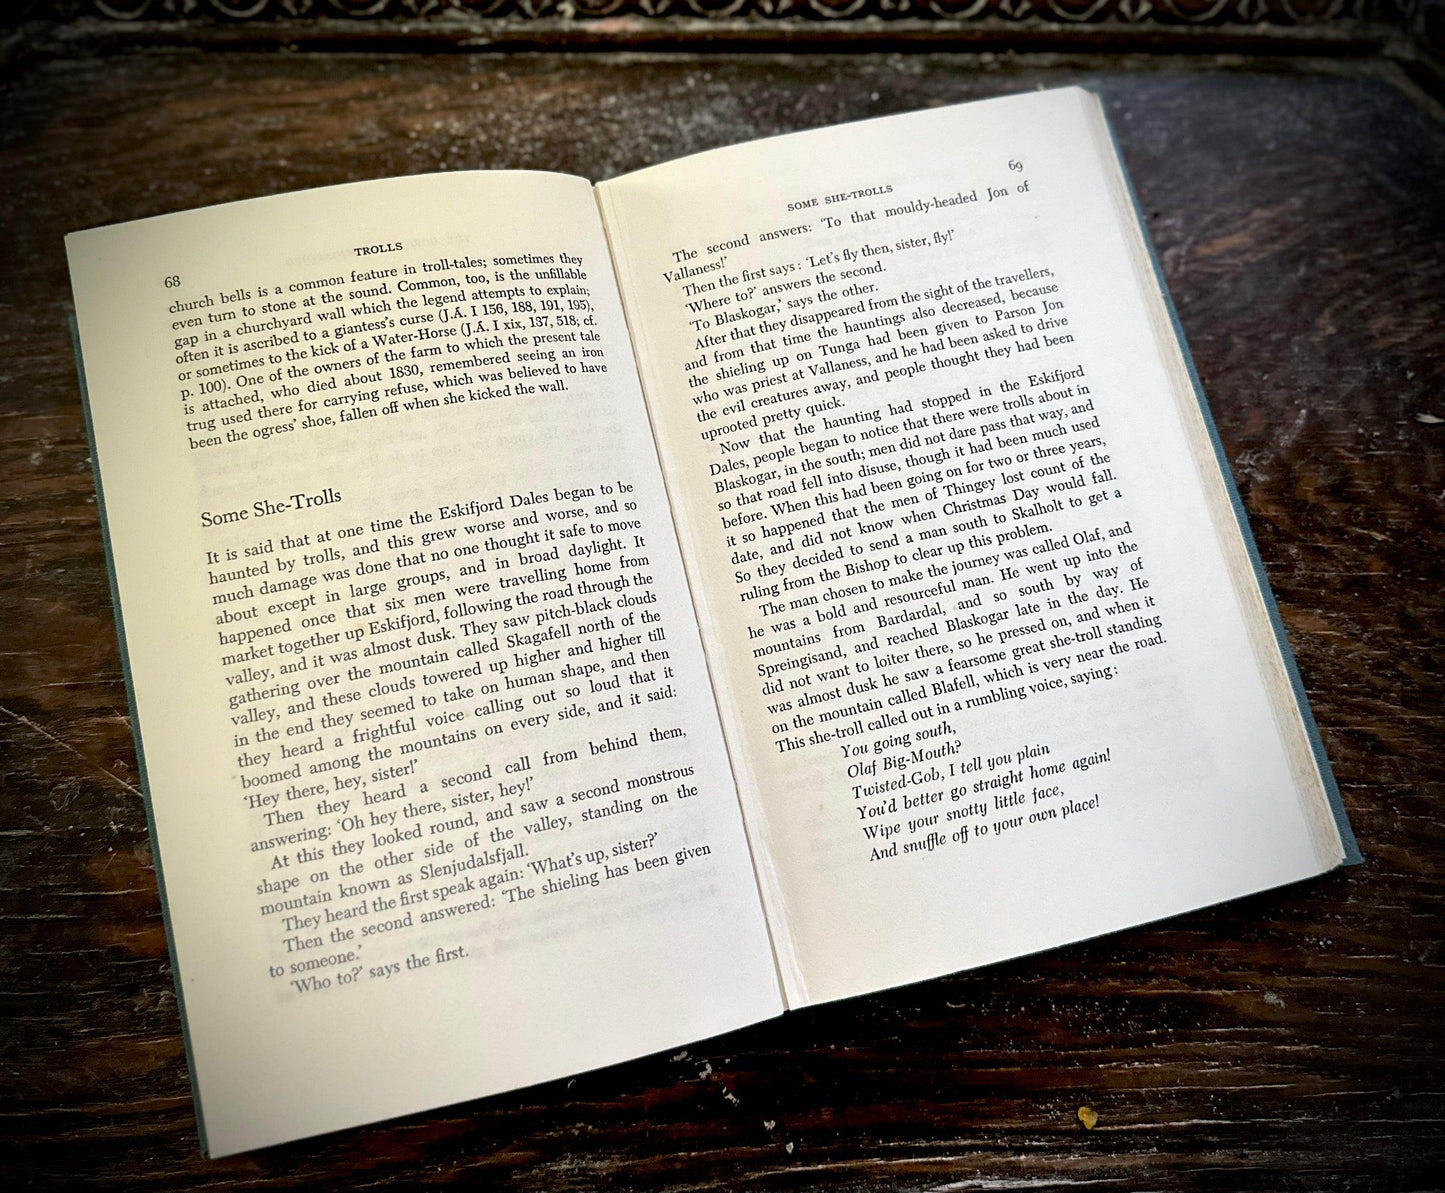 68
TROLLS
church bells is a common feature in troll-tales; sometimes they
even turn to stone at the sound. Common, too, is the unfillable
gap in a churchyard wall which the legend attempts to explain;
often it is ascribed to a giantess's curse (J.Á. I 156, 188, 191, 195),
or sometimes to the kick of a Water-Horse (J.Á. I xix, 137, 518; cf.
p. 100). One of the owners of the farm to which the present tale
is attached, who died about 1830, remembered seeing an iron
trug used there for carrying refuse, which was believed to have
been the ogress' shoe, fallen off when she kicked the wall.
Some She-Trolls
It is said that at one time the Eskifjord Dales began to be
haunted by trolls, and this grew worse and worse, and so
much damage was done that no one thought it safe to move
about except in large groups, and in broad daylight. It
happened once that six men were travelling home from
market together up Eskifjord, following the road through the
valley, and it was almost dusk. They saw pitch-black clouds
gathering over the mountain called Skagafell north of the
valley, and these clouds towered up higher and higher till
in the end they seemed to take on human shape, and then
they heard a frightful voice calling out so loud that it
boomed among the mountains on every side, and it said:
'Hey there, hey, sister!'
Then they heard a second call from behind them,
answering: 'Oh hey there, sister, hey!'
At this they looked round, and saw a second monstrous
shape on the other side of the valley, standing on the
mountain known as Slenjudalsfjall.
They heard the first speak again: 'What's up, sister?'
Then the second answered: 'The shieling has been given
to someone.'
'Who to?' says the first.
SOME SHE-TROLLS
69
The second answers: 'To that mouldy-headed Jon of
Vallaness!'
Then the first says: 'Let's fly then, sister, fly!'
'Where to?' answers the second.
'To Blaskogar,' says the other.
After that they disappeared from the sight of the travellers,
and from that time the hauntings also decreased, because
the shieling up on Tunga had been given to Parson Jon
who was priest at Vallaness, and he had been asked to drive
the evil creatures away, and people thought they had been
uprooted pretty quick.
Now that the haunting had stopped in the Eskifjord
Dales, people began to notice that there were trolls about in
Blaskogar, in the south; men did not dare pass that way, and
so that road fell into disuse, though it had been much used
before. When this had been going on for two or three years,
it so happened that the men of Thingey lost count of the
date, and did not know when Christmas Day would fall.
So they decided to send a man south to Skalholt to get a
ruling from the Bishop to clear up this problem.
The man chosen to make the journey was called Olaf, and
he was a bold and resourceful man. He went up into the
mountains from Bardardal, and so south by way of
Spreingisand, and reached Blaskogar late in the day. He
did not want to loiter there, so he pressed on, and when it
was almost dusk he saw a fearsome great she-troll standing
on the mountain called Blafell, which is very near the road.
This she-troll called out in a rumbling voice, saying:
You going south,
Olaf Big-Mouth?
Twisted-Gob, I tell you plain
You'd better go straight home again!
Wipe your snotty little face,
And snuffle off to your own place!